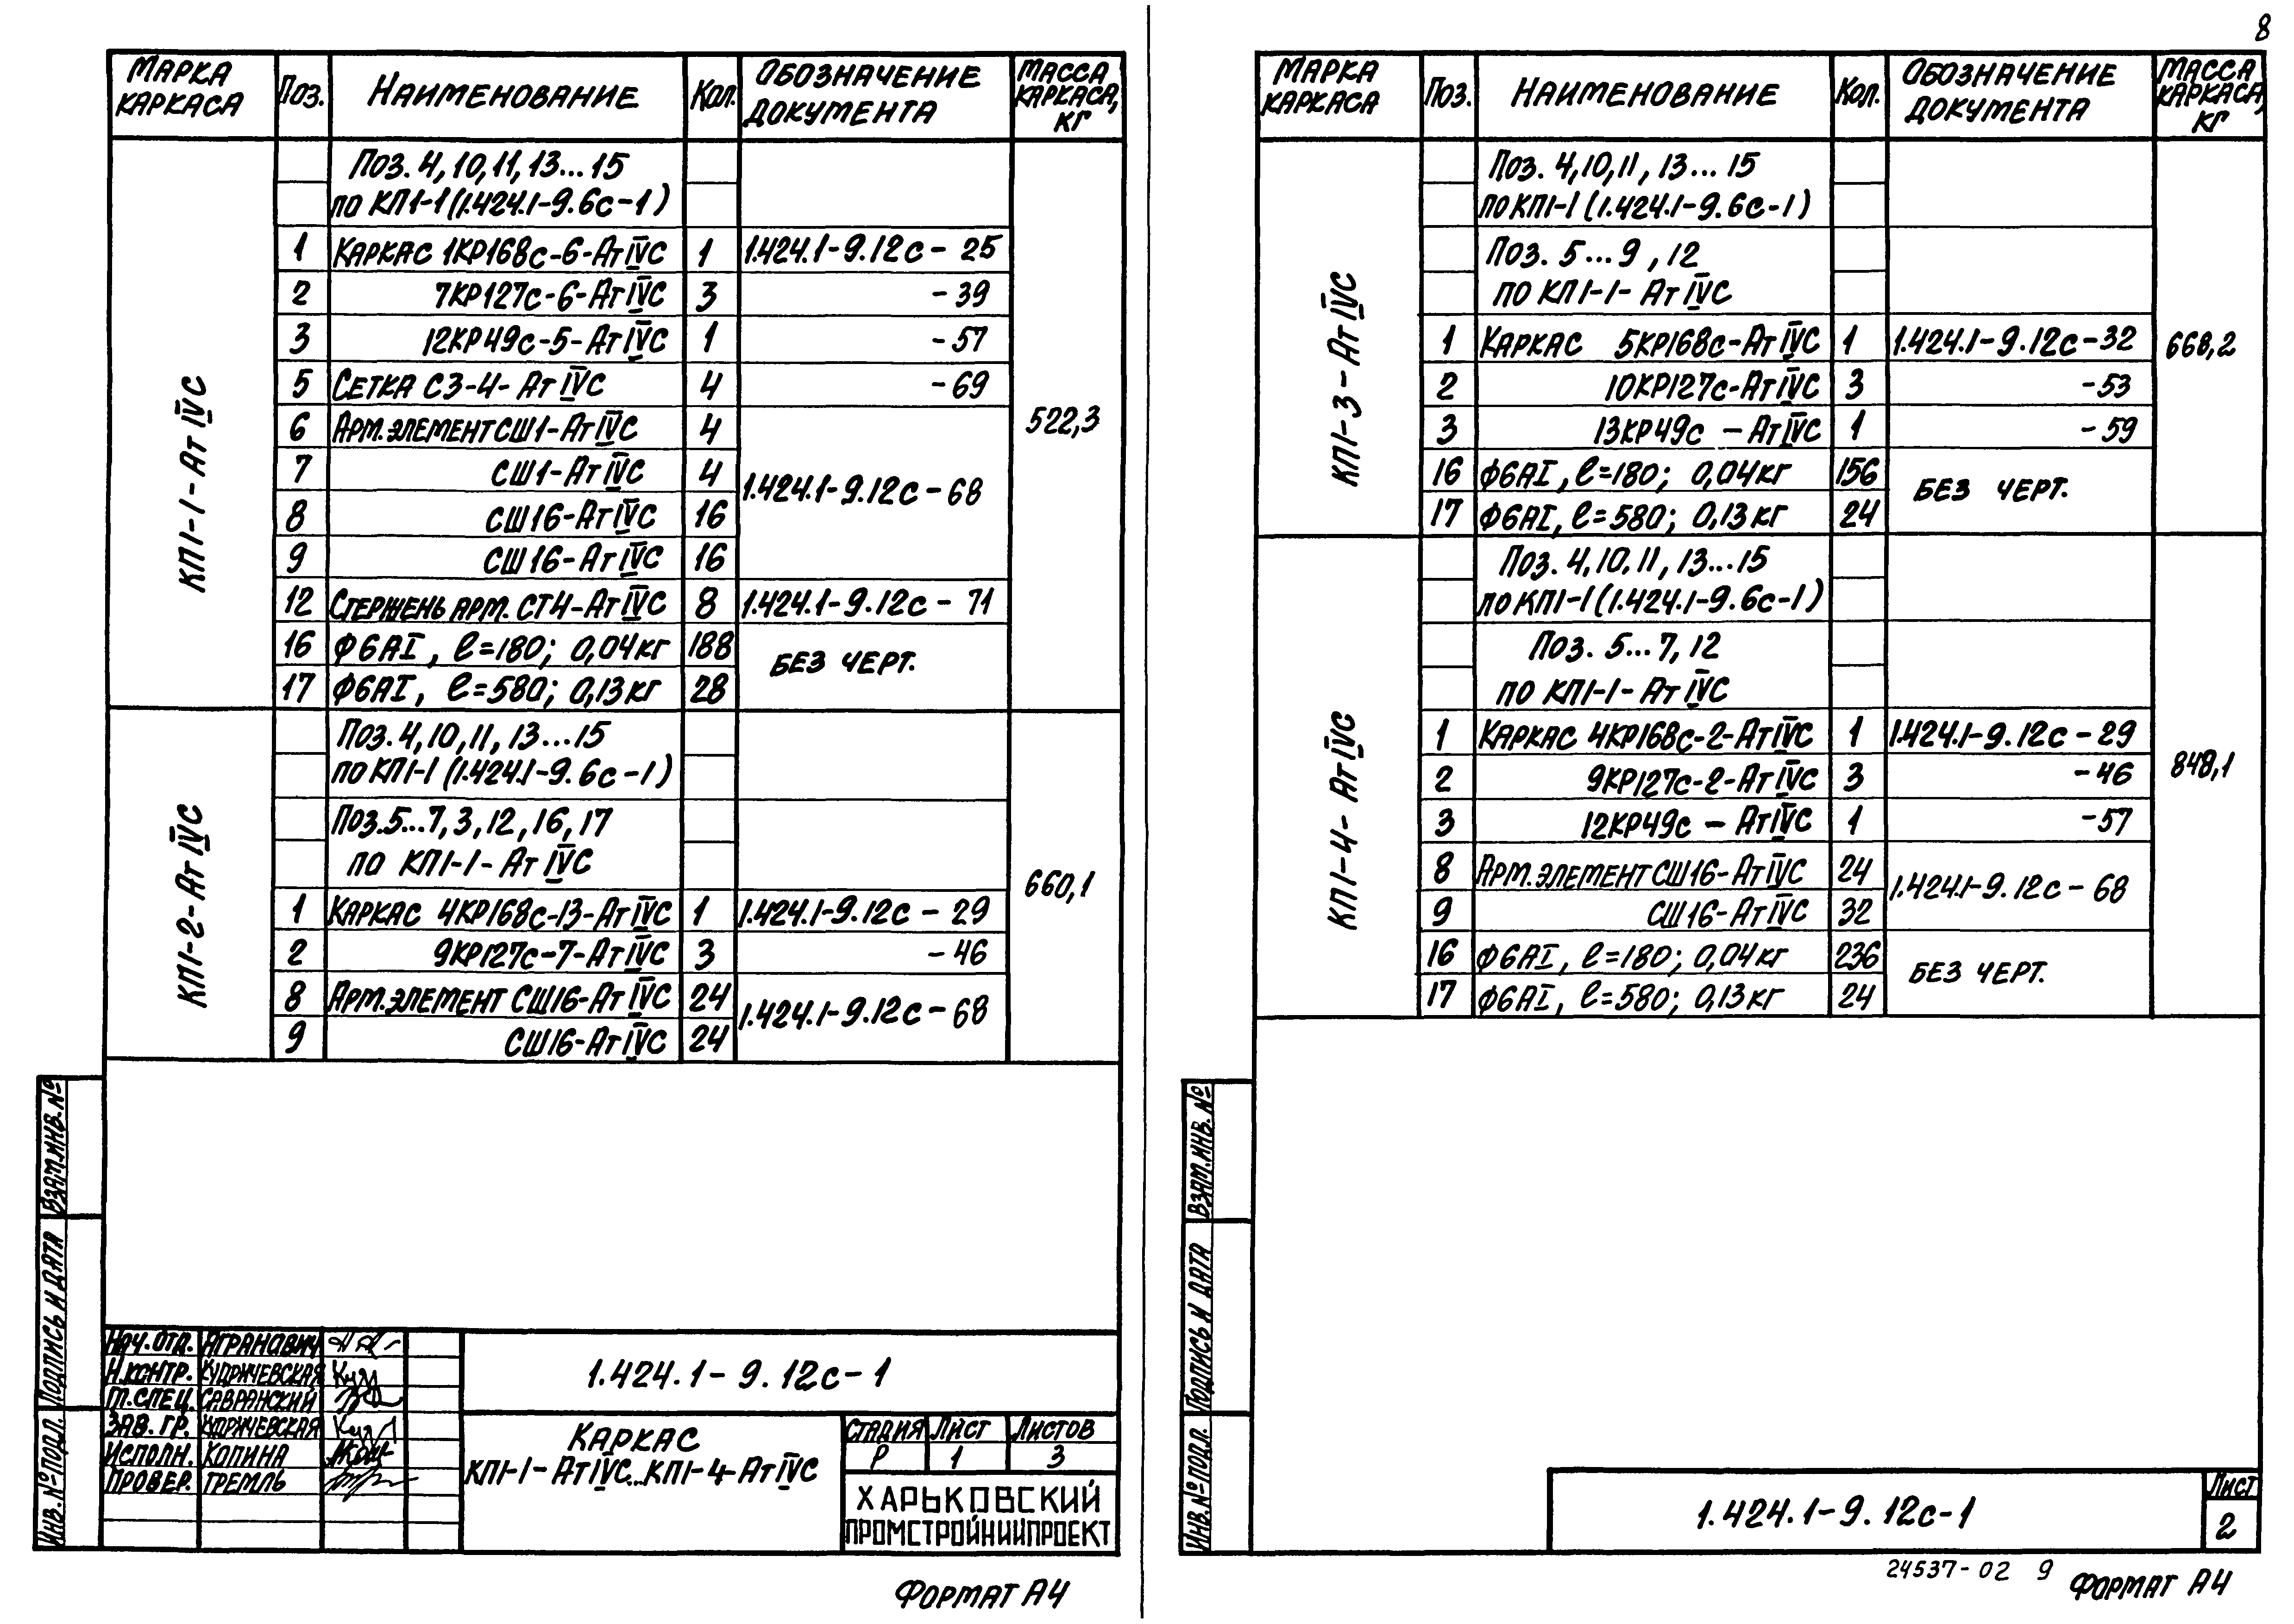 8
МАРКА КАРКАСА Поз. НАИМЕНОВАНИЕ Кол. ОБОЗНАЧЕНИЕ ДОКУМЕНТА МАССА КАРКАСА, КГ
КП1-1-АтIVС
Поз. 4, 10, 11, 13...15
по КП1-1 (1.424.1-9.6с-1)
1 КАРКАС 1КР168с-6-АтIVС 1 1.424.1-9.12с-25
2 7КР127с-6-АтIVС 3 -39
3 12КР49с-5-АтIVС 1 -57
5 СЕТКА С3-4-АтIVС 4 -69
522,3
6 АРМ.ЭЛЕМЕНТ СШ1-АтIVС 4
7 СШ1-АтIVС 4
1.424.1-9.12с-68
8 СШ16-АтIVС 16
9 СШ16-АтIVС 16
12 СТЕРЖЕНЬ АРМ. СТ4-АтIVС 8 1.424.1-9.12с-71
16 Ф6АI, ℓ=180; 0,04кг 188
БЕЗ ЧЕРТ.
17 Ф6АI, ℓ=580; 0,13кг 28
КП1-2-АтIVС
Поз. 4, 10, 11, 13...15
по КП1-1 (1.424.1-9.6с-1)
Поз. 5...7, 3, 12, 16, 17
по КП1-1-АтIVС
660,1
1 КАРКАС 4КР168с-13-АтIVС 1 1.424.1-9.12с-29
2 9КР127с-7-АтIVС 3 -46
8 АРМ.ЭЛЕМЕНТ СШ16-АтIVС 24
1.424.1-9.12с-68
9 СШ16-АтIVС 24
ВЗАМ.ИНВ.№
ПОДПИСЬ И ДАТА
ИНВ.№ПОДЛ.
НАЧ.ОТД. АГРАНОВИЧ
Н.КОНТР. КУДРИЧЕВСКАЯ
ГЛ.СПЕЦ. САВРАНСКИЙ
ЗАВ. ГР. КУДРИЧЕВСКАЯ
ИСПОЛН. КОПИНА
ПРОВЕР. ТРЕМЛЬ
1.424.1-9.12с-1
КАРКАС
КП1-1-АтIVС...КП1-4-АтIVС
СТАДИЯ ЛИСТ ЛИСТОВ
Р 1 3
ХАРЬКОВСКИЙ
ПРОМСТРОЙНИИПРОЕКТ
ФОРМАТ А4
МАРКА КАРКАСА Поз. НАИМЕНОВАНИЕ Кол. ОБОЗНАЧЕНИЕ ДОКУМЕНТА МАССА КАРКАСА, КГ
КП1-3-АтIVС
Поз. 4, 10, 11, 13...15
по КП1-1 (1.424.1-9.6с-1)
Поз. 5...9, 12
по КП1-1-АтIVС
1 КАРКАС 5КР168с-АтIVС 1 1.424.1-9.12с-32
668,2
2 10КР127с-АтIVС 3 -53
3 13КР49с-АтIVС 1 -59
16 Ф6АI, ℓ=180; 0,04кг 156
БЕЗ ЧЕРТ.
17 Ф6АI, ℓ=580; 0,13кг 24
КП1-4-АтIVС
Поз. 4, 10, 11, 13...15
по КП1-1 (1.424.1-9.6с-1)
Поз. 5...7, 12
по КП1-1-АтIVС
1 КАРКАС 4КР168с-2-АтIVС 1 1.424.1-9.12с-29
848,1
2 9КР127с-2-АтIVС 3 -46
3 12КР49с-АтIVС 1 -57
8 АРМ.ЭЛЕМЕНТ СШ16-АтIVС 24
1.424.1-9.12с-68
9 СШ16-АтIVС 32
16 Ф6АI, ℓ=180; 0,04кг 236
БЕЗ ЧЕРТ.
17 Ф6АI, ℓ=580; 0,13кг 24
ВЗАМ.ИНВ.№
ПОДПИСЬ И ДАТА
ИНВ.№ПОДЛ.
1.424.1-9.12с-1
ЛИСТ
2
24537-02 9
ФОРМАТ А4